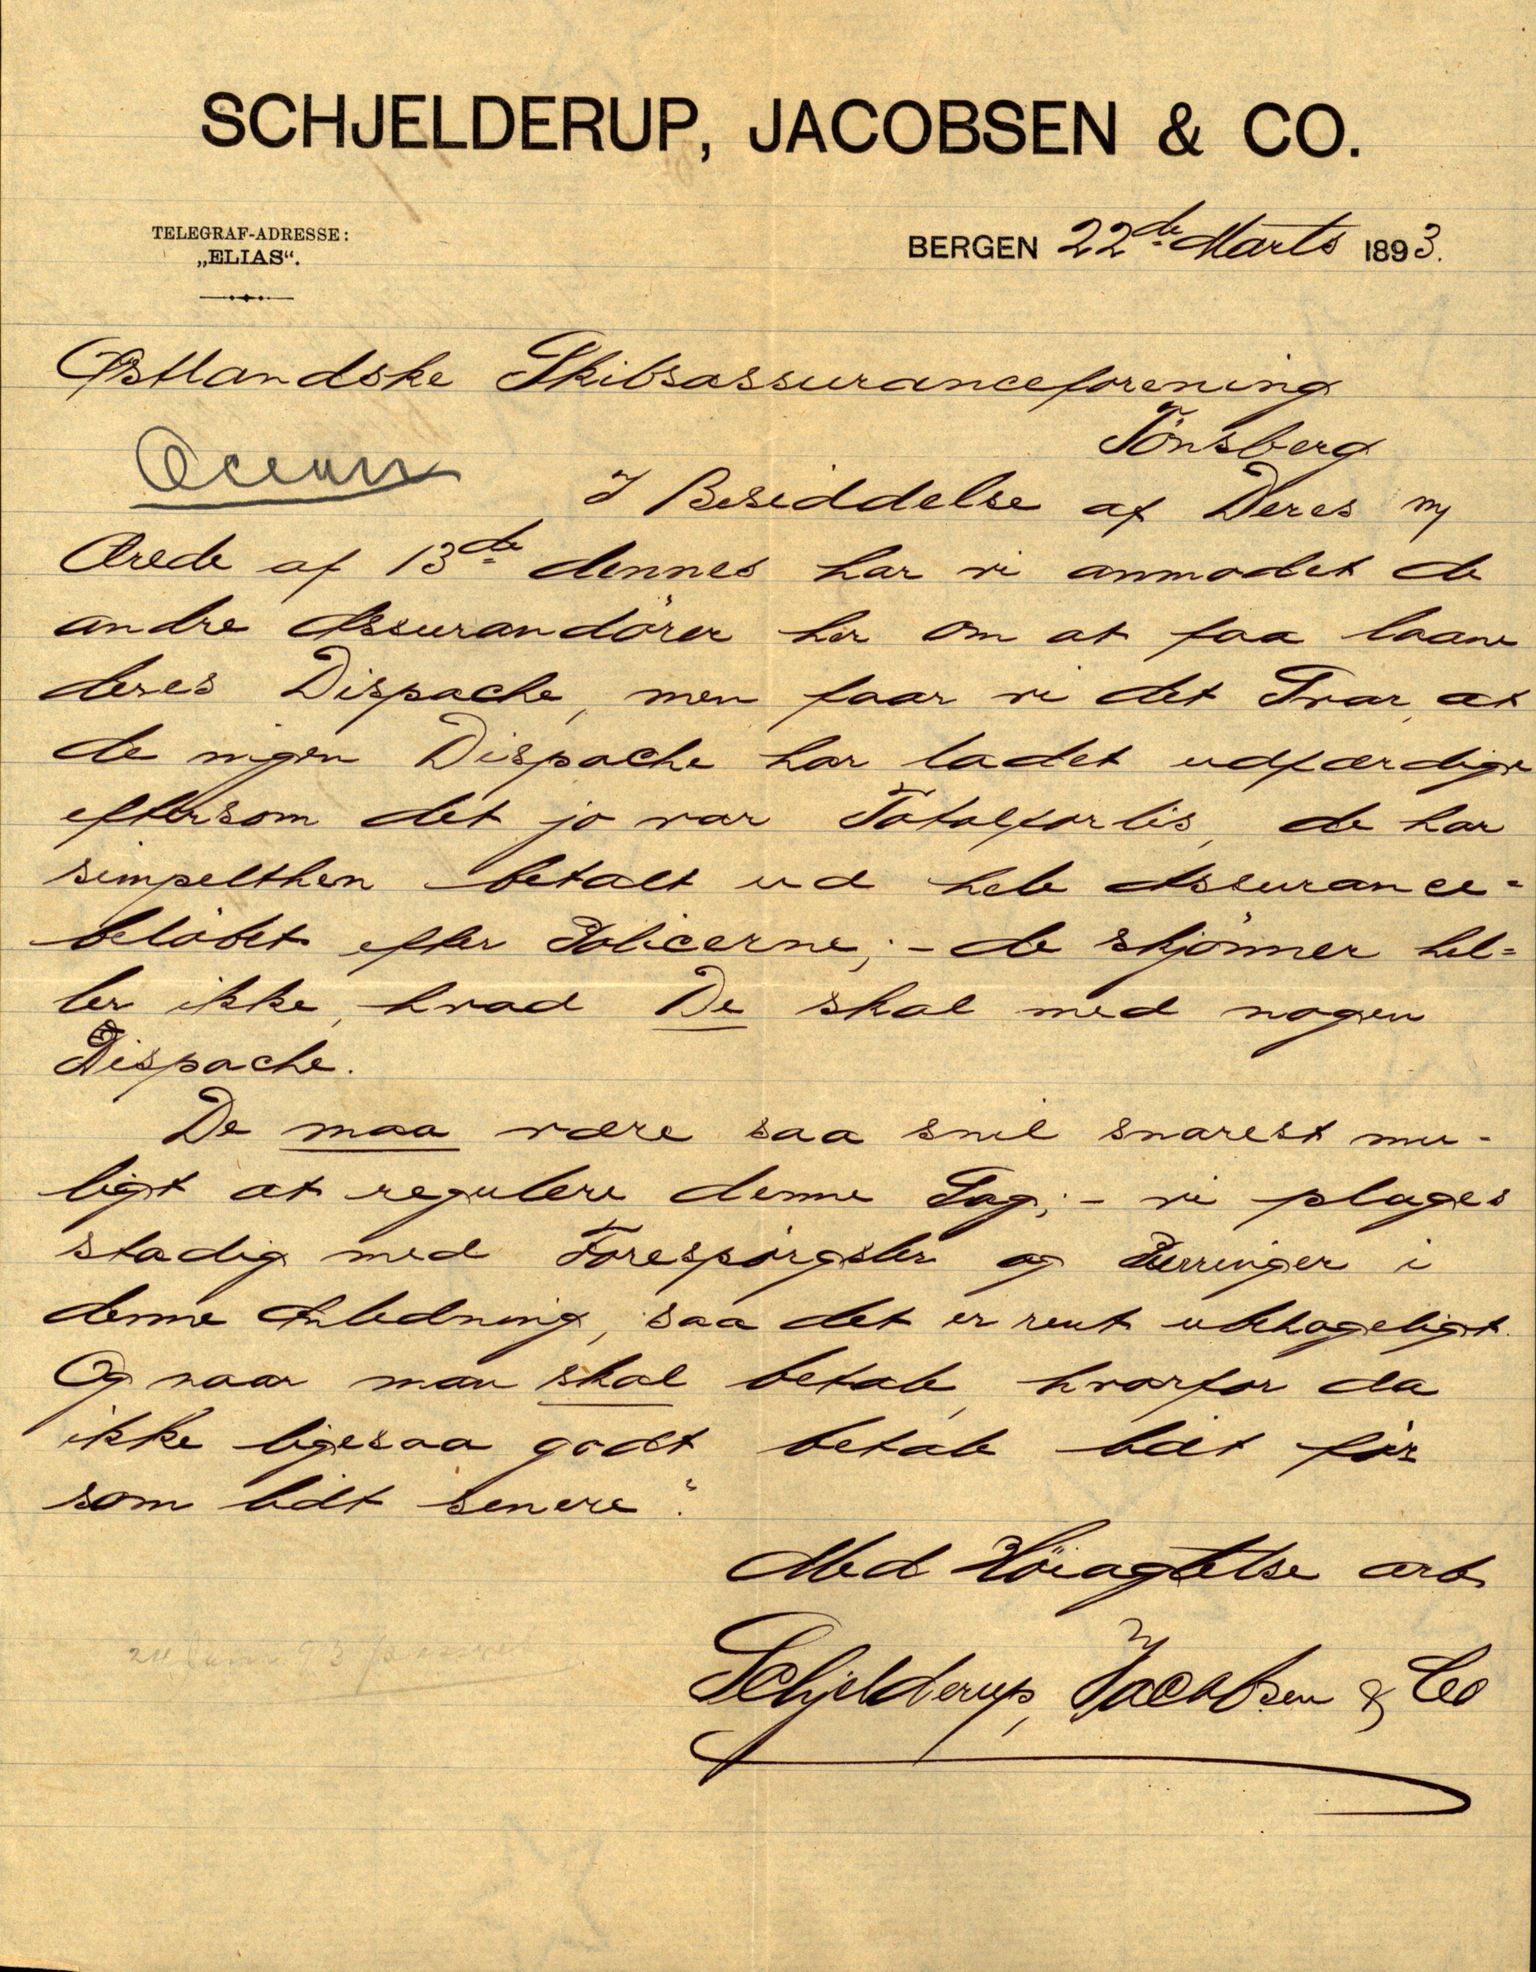 SCHJELDERUP, JACOBSEN & CO.
TELEGRAF-ADRESSE:
„ELIAS“.
BERGEN 22de Marts 1893.
Østlandske Skibsassuranceforening
Tönsberg
I Besiddelse af Deres
Ærede af 13de dennes har vi anmodet de
andre Assurandörer her om at faa laane
deres Dispache, men faar vi det Svar, at
de ingen Dispache har ladet udfærdige
eftersom det jo var Totalforlis, de har
simpelthen betalt ud hele Assurance=
belöbet efter Policerne; – de skjönner hel=
ler ikke, hvad De skal med nogen
Dispache.
De maa være saa snil snarest mu-
ligt at regulere denne Sag; – vi plages
stadig med Forespörgsler og Purringer i
denne Anledning, saa det er rent ubehageligt.
Og naar man skal betale, hvorfor da
ikke ligesaa godt betale lidt för
som lidt senere?
Med Höiagtelse ærb.
Schjelderup, Jacobsen & Co